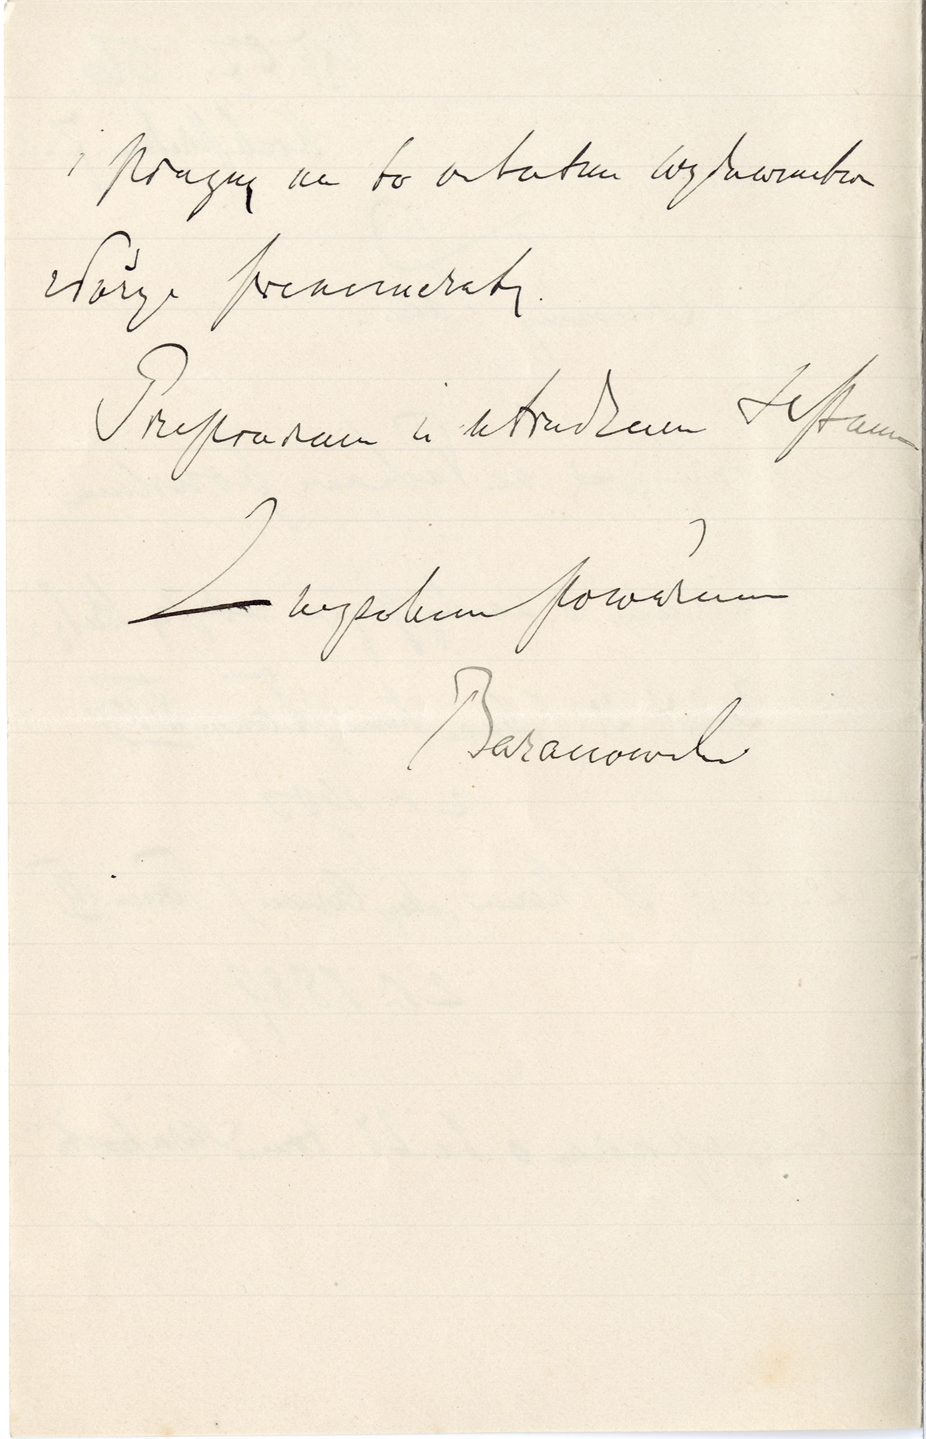 i pragnę na to ostatnie wydawnictwo
złożyć prenumeratę.
Przepraszam iż utrudzam
Z wysokiem poważaniem
Baranowski